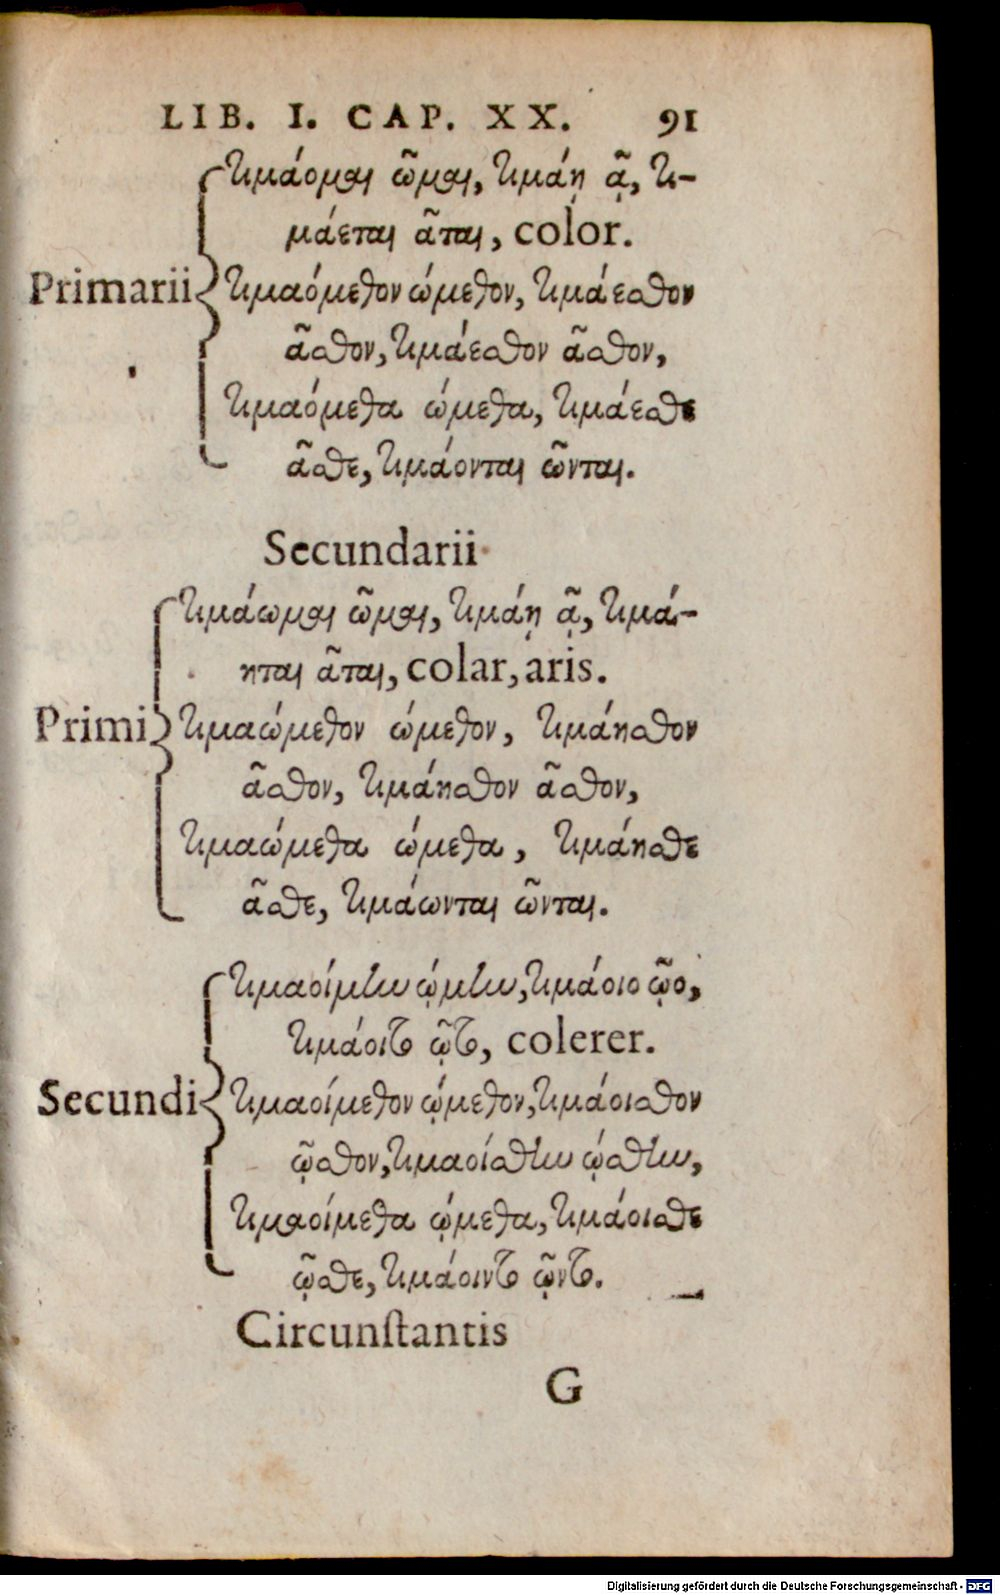 LIB. I. CAP. XX. 91
τιμάομαι ῶμαι, τιμάῃ ᾷ, τι-
μάεται ᾶται, color.
Primarii τιμαόμεθον ώμεθον, τιμάεσθον
ᾶσθον, τιμάεσθον ᾶσθον,
τιμαόμεθα ώμεθα, τιμάεσθε
ᾶσθε, τιμάονται ῶνται.
Secundarii
τιμάωμαι ῶμαι, τιμάῃ ᾷ, τιμά-
ηται ᾶται, colar, aris.
Primi τιμαώμεθον ώμεθον, τιμάησθον
ᾶσθον, τιμάησθον ᾶσθον,
τιμαώμεθα ώμεθα, τιμάησθε
ᾶσθε, τιμάωνται ῶνται.
τιμαοίμην ῴμην, τιμάοιο ῷο,
τιμάοιτο ῷτο, colerer.
Secundi τιμαοίμεθον ῴμεθον, τιμάοισθον
ῷσθον, τιμαοίσθην ῴσθην,
τιμαοίμεθα ῴμεθα, τιμάοισθε
ῷσθε, τιμάοιντο ῷντο.
Circunſtantis
G
Digitalisierung gefördert durch die Deutsche Forschungsgemeinschaft - DFG